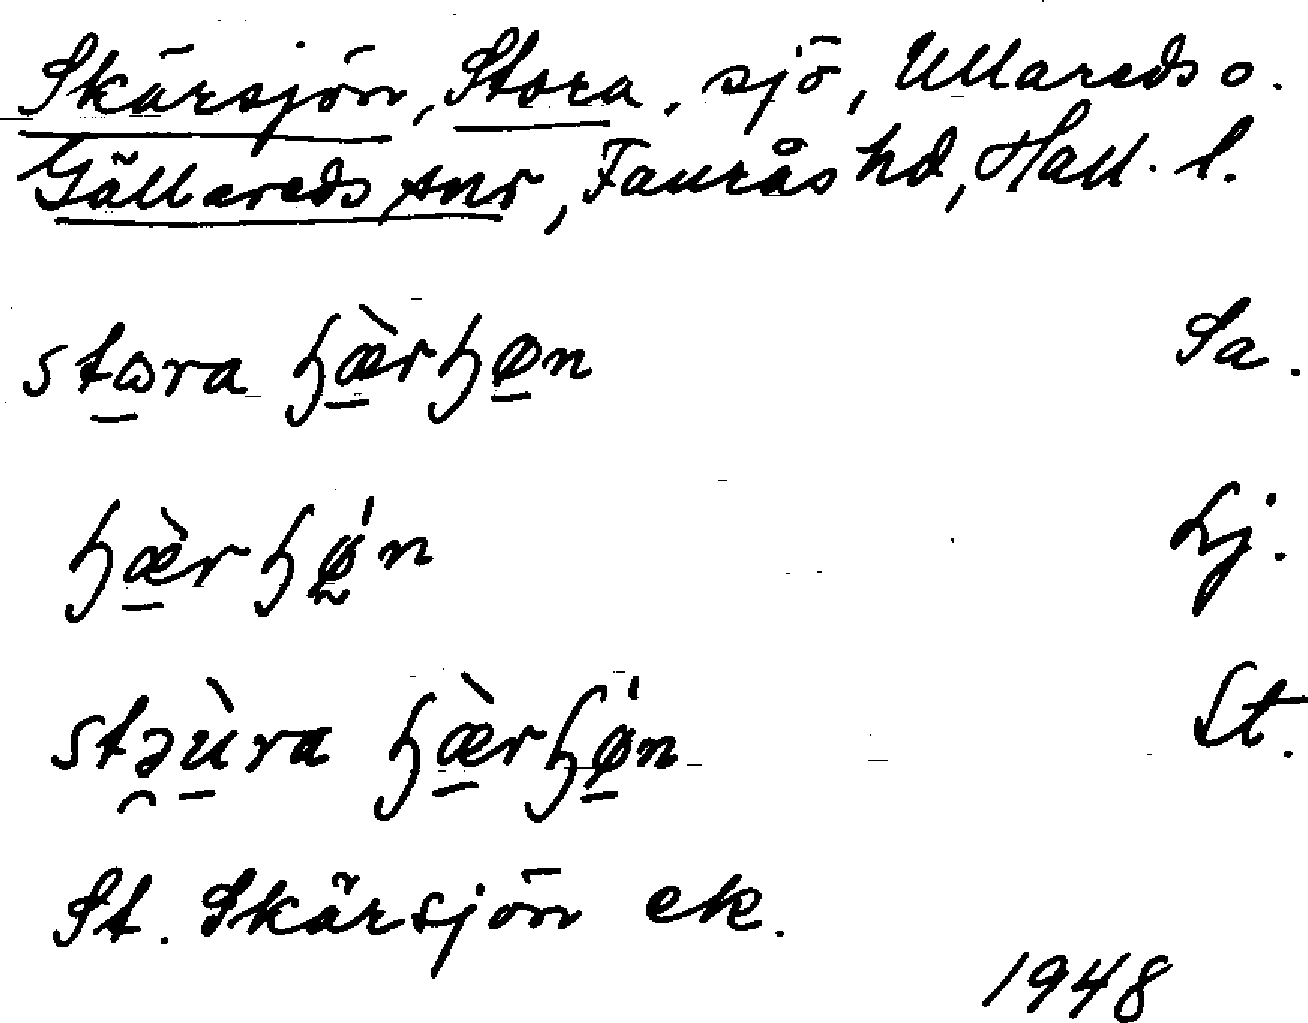 Skärsjön, Stora, sjö, Ullareds o.
Gällareds snr, Faurås hd, Hall. l.
stꞷra ɧæ̀rɧøn Sa.
ɧæ̀rɧø̍n Lj.
stəùra ɧæ̀rɧø̍n St.
St. Skärsjön ek.
1948